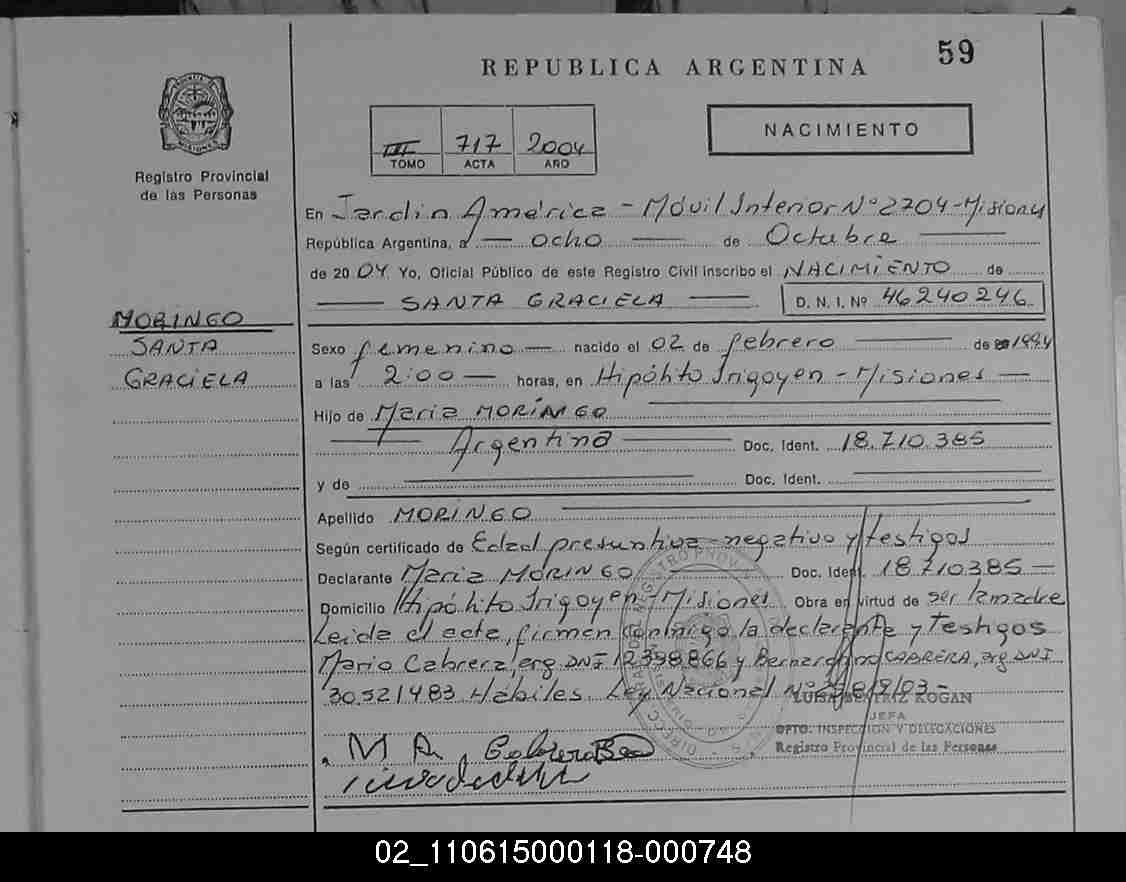 59
REPUBLICA ARGENTINA
III 717 2004
TOMO ACTA AÑO
NACIMIENTO
MISIONES
Registro Provincial
de las Personas
En Jardin América - Móvil Interior Nº 2704 - Misiones
República Argentina, a — ocho — de Octubre
de 2004 Yo, Oficial Público de este Registro Civil inscribo el NACIMIENTO de
SANTA GRACIELA D. N. I. Nº 46240246
MORINGO
SANTA
GRACIELA
Sexo femenino — nacido el 02 de febrero de 1994
a las 2:00 — horas, en Hipólito Irigoyen - Misiones —
Hijo de Maria MORINGO
Argentina Doc. Ident. 18.710.385
y de Doc. Ident.
Apellido MORINGO
Según certificado de Edad presuntiva - negativo y testigos
Declarante Maria MORINGO Doc. Ident. 18.710385 —
Domicilio Hipólito Irigoyen - Misiones Obra en virtud de ser la madre
Leida el acta, firman conmigo la declarante y testigos
Mario Cabrera, arg DNI 12398866 y Bernardino CABRERA, arg DNI
30521483 Hábiles. Ley Nacional Nº
LUISA BEATRIZ KOGAN
JEFA
DPTO. INSPECCION Y DELEGACIONES
Registro Provincial de las Personas
M A Cabrera
02_110615000118-000748